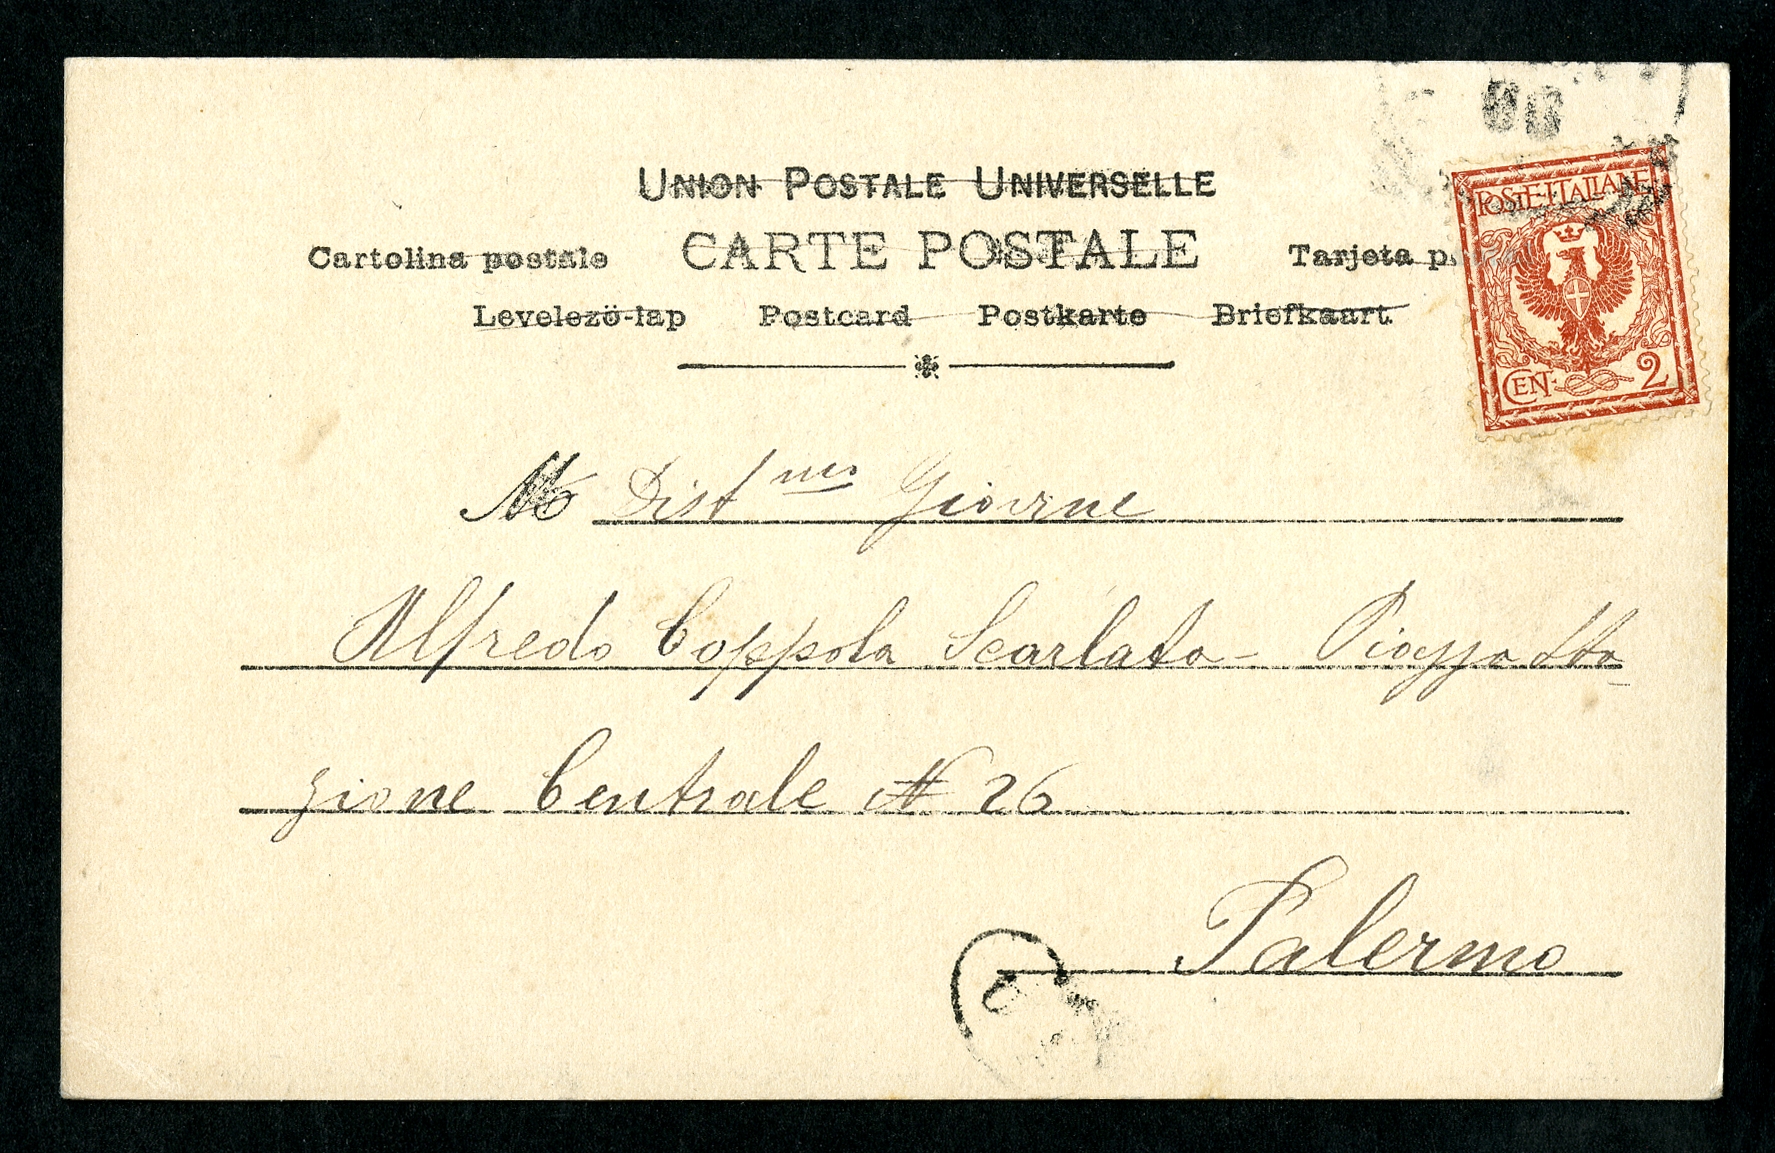 UNION POSTALE UNIVERSELLE
Cartolina postale CARTE POSTALE Tarjeta p.
Levelezö-lap Postcard Postkarte Briefkaart
POSTE·ITALIANE
CENT. 2
Al Distmo Giovine
Alfredo Coppola Scarlata - Piazza Sta
zione Centrale N 26
Palermo